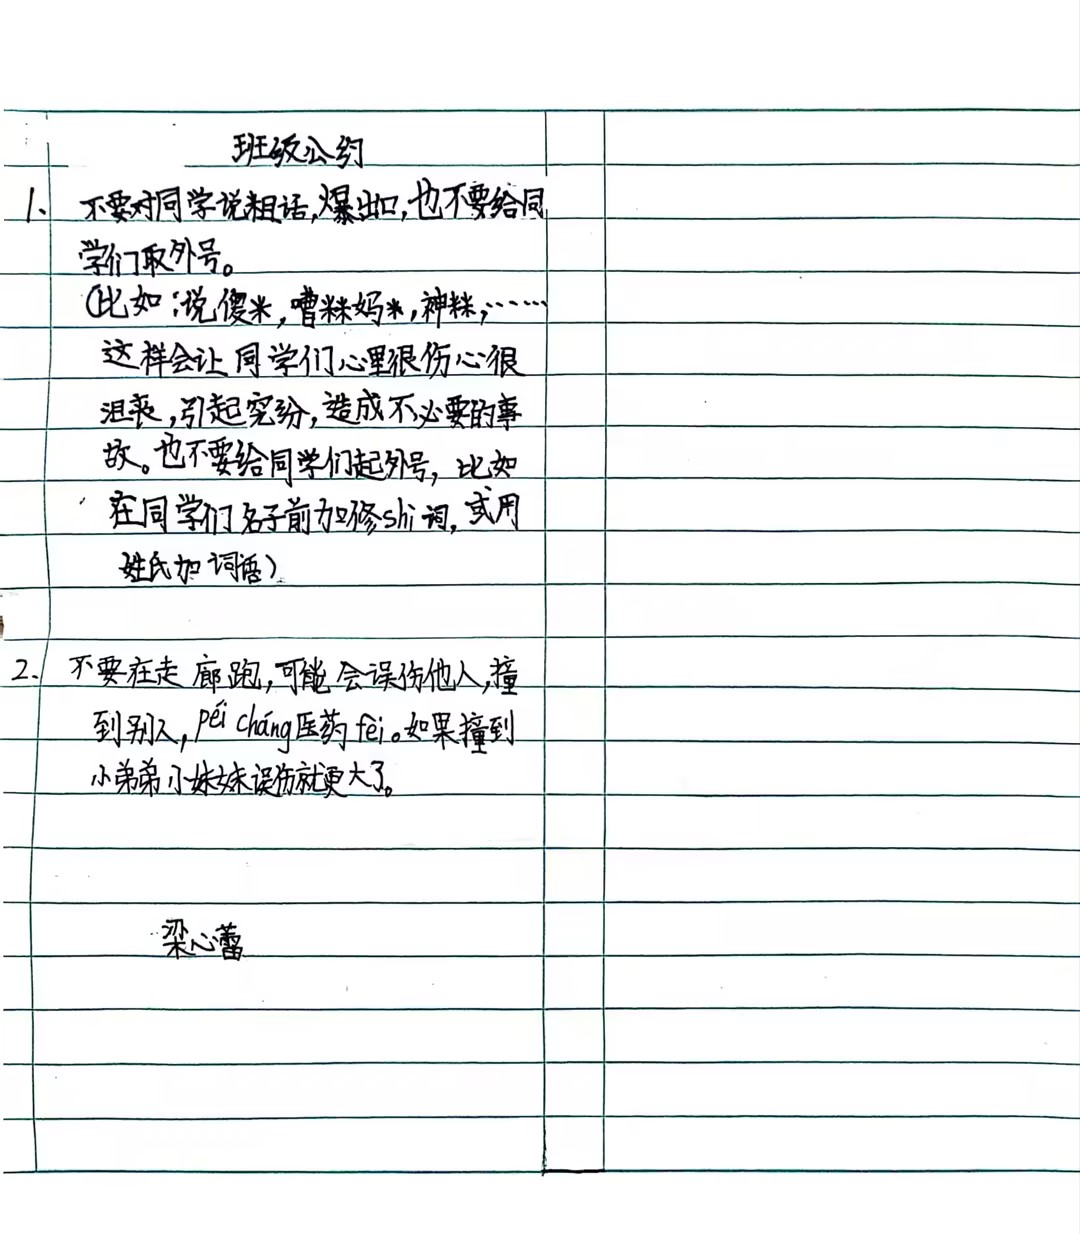 班级公约
1、不要对同学说粗话,爆出口,也不要给同
学们取外号。
(比如:说傻米,嘈粖妈*,神粖,……
这样会让同学们心里很伤心很
沮丧,引起究纷,造成不必要的事
故。也不要给同学们起外号,比如
在同学们名子前加修shi词,或用
姓氏加词语)
2、不要在走廊跑,可能会误伤他人,撞
到别人,péi cháng医药fèi。如果撞到
小弟弟小妹妹误伤就更大了。
梁心蕾